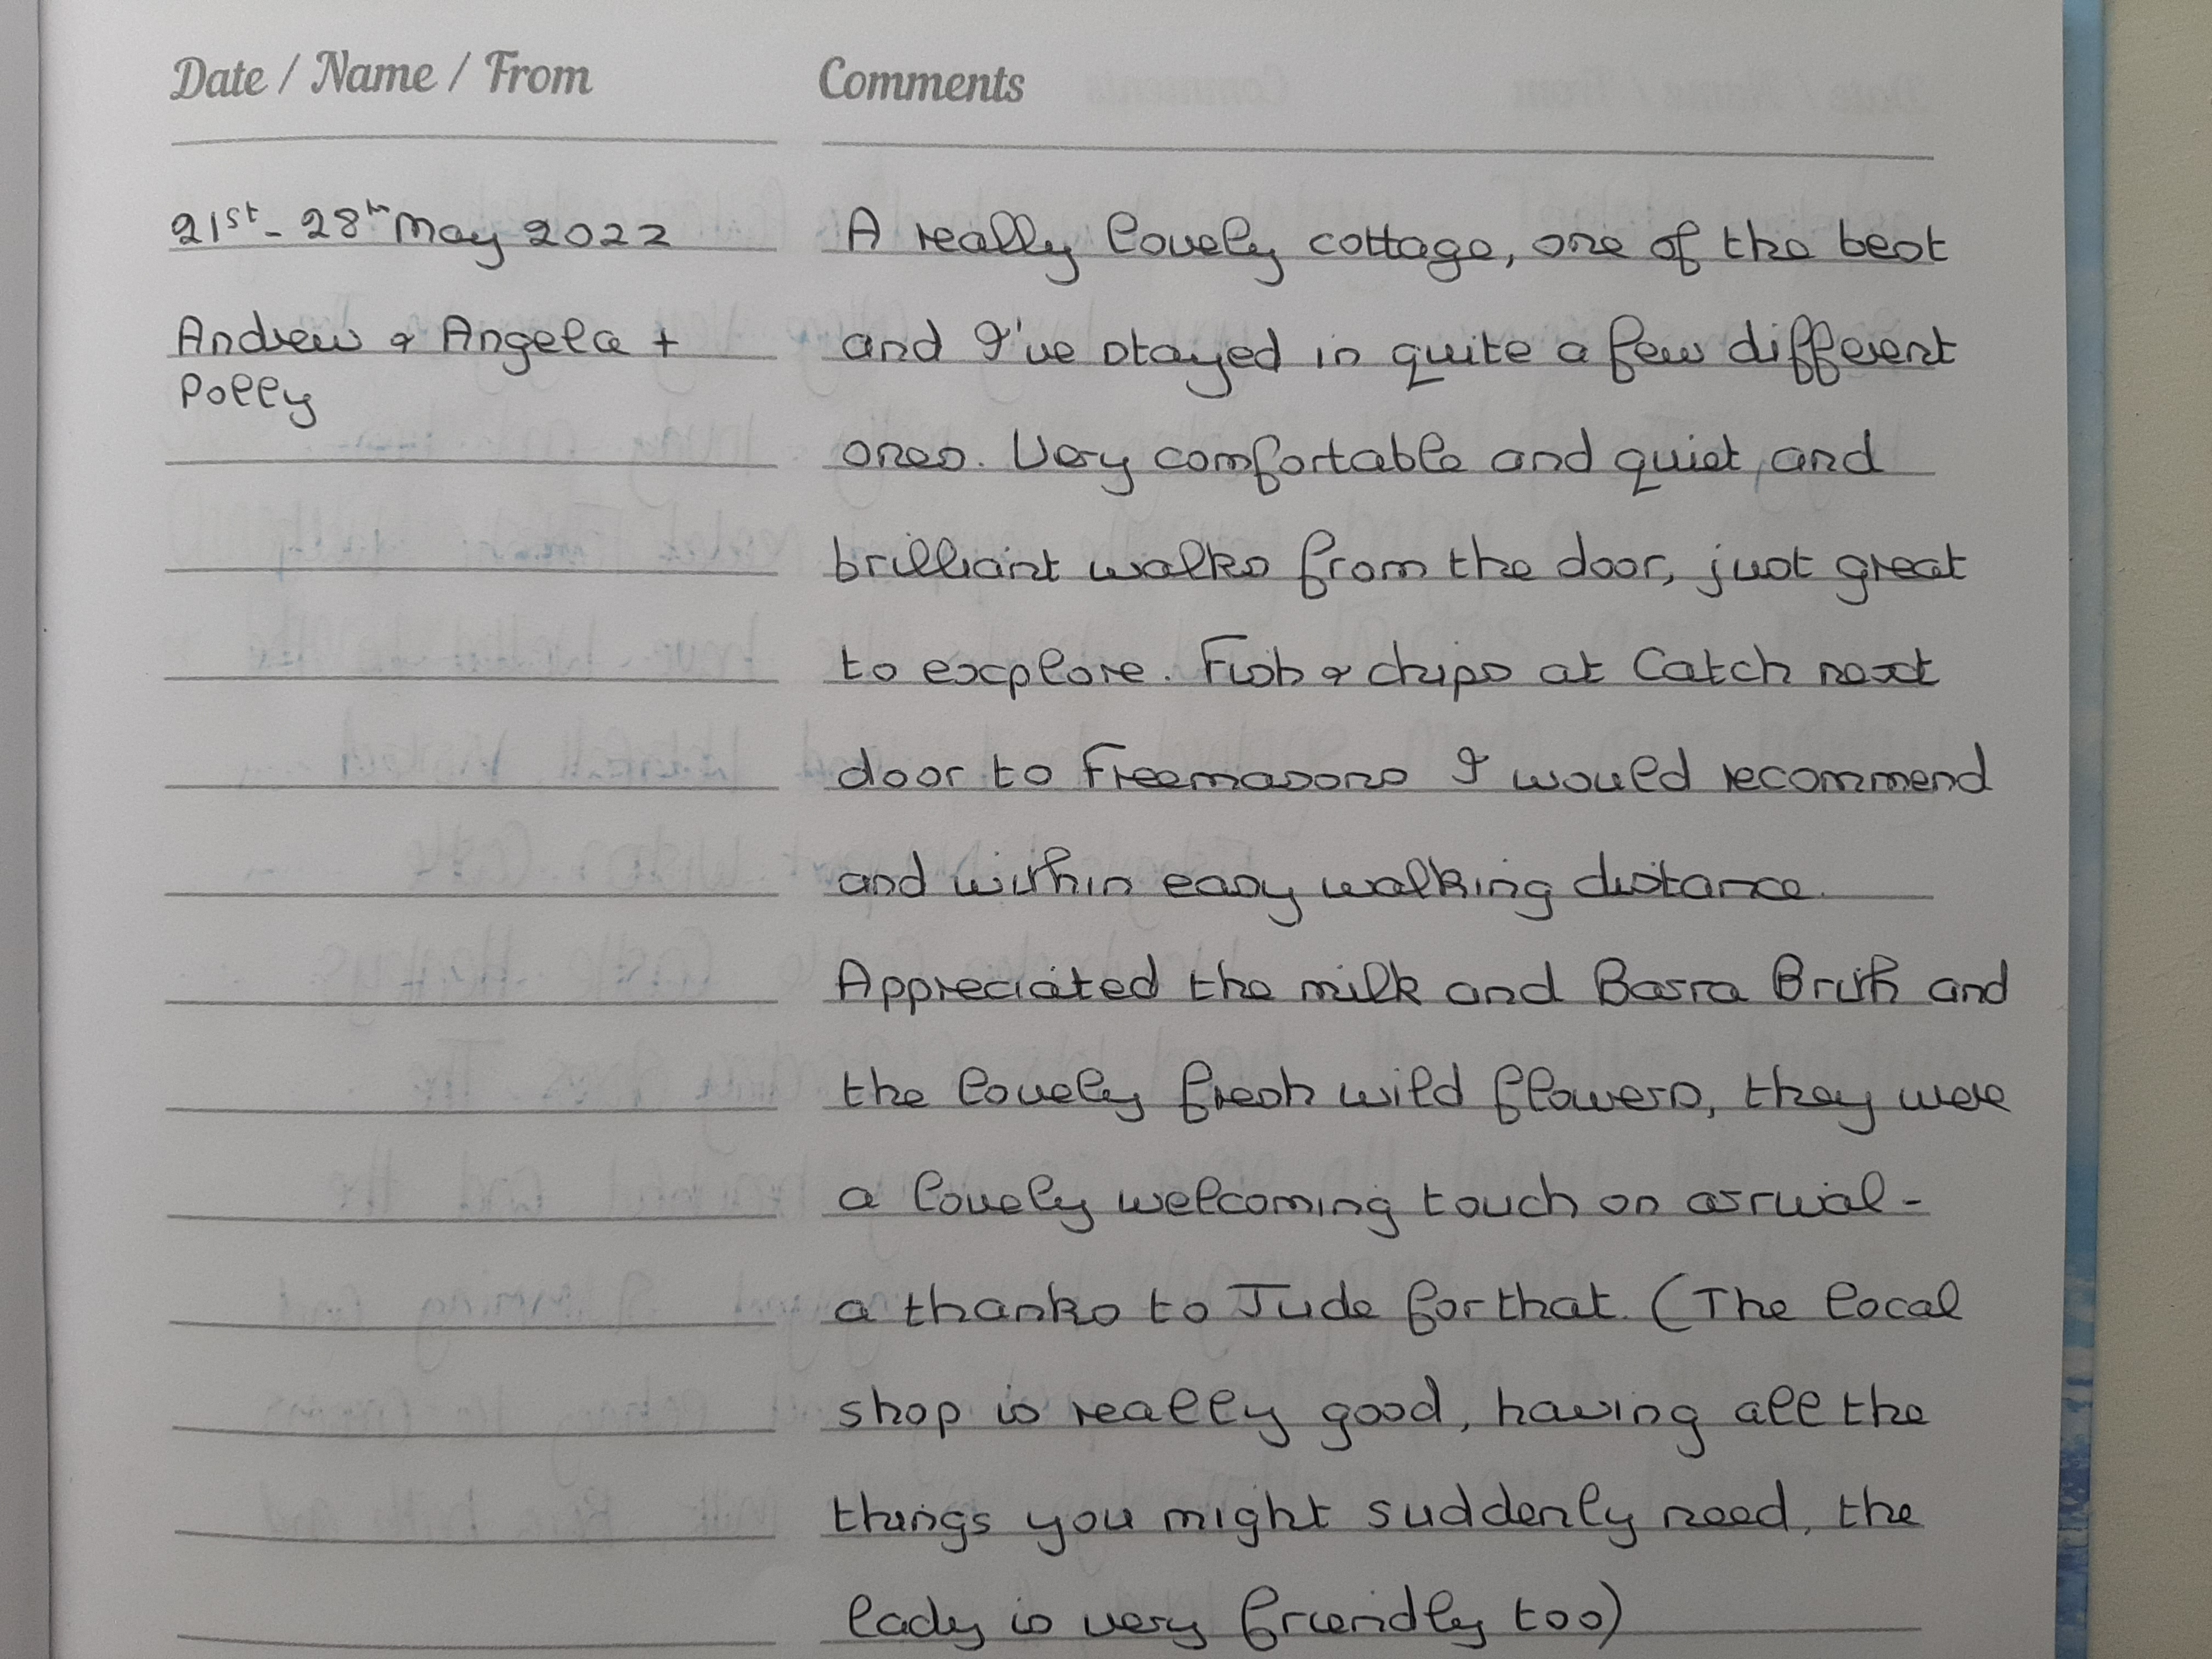 Date / Name / From
Comments
21st - 28th May 2022
Andrew & Angela +
Polly
A really lovely cottage, one of the best
and I've stayed in quite a few different
ones. Very comfortable and quiet, and
brilliant walks from the door, just great
to explore. Fish & chips at Catch next
door to Freemasons I would recommend
and within easy walking distance.
Appreciated the milk and Barra Brith and
the lovely fresh wild flowers, they were
a lovely welcoming touch on arrival -
a thanks to Jude for that. (The local
shop is really good, having all the
things you might suddenly need, the
lady is very friendly too)